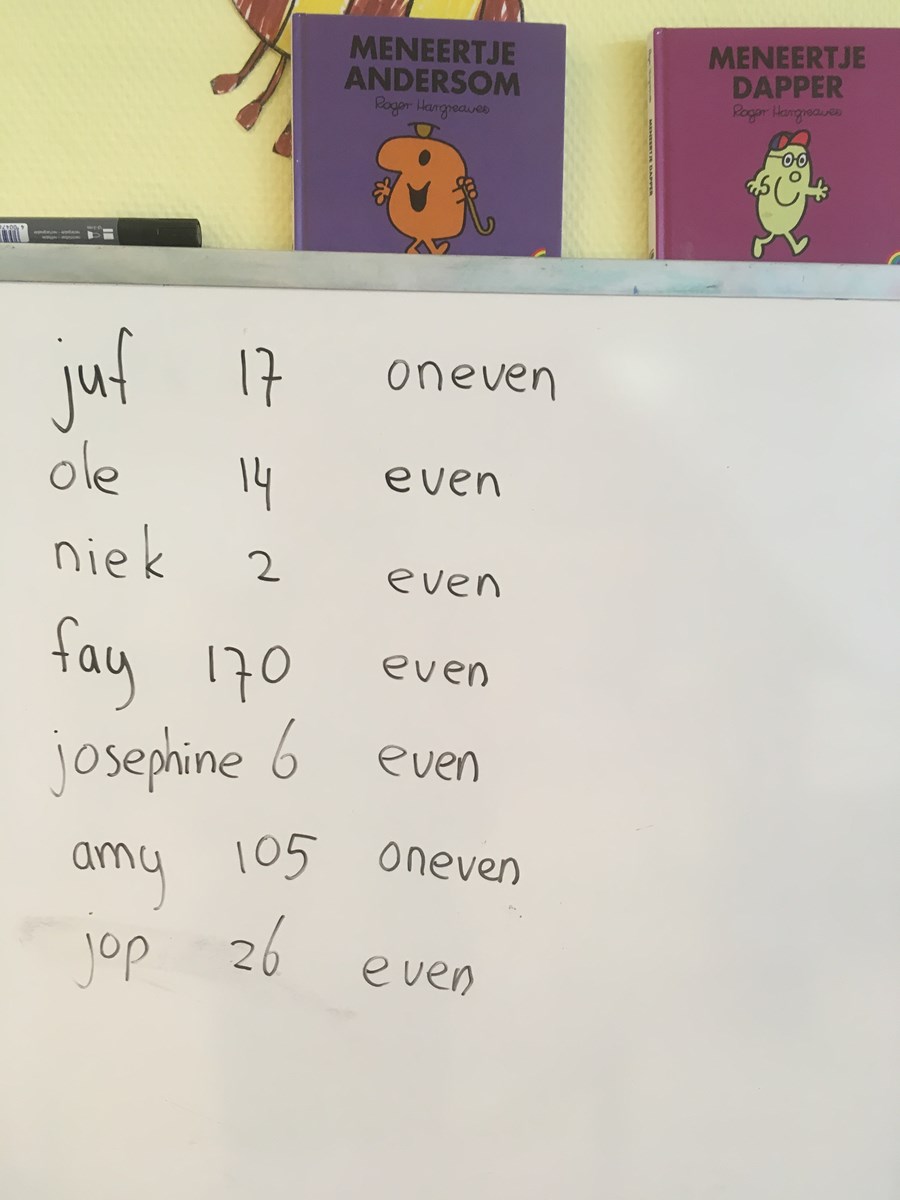 MENEERTJE
ANDERSOM
Roger Hargreaves
MENEERTJE
DAPPER
Roger Hargreaves
juf 17 oneven
ole 14 even
niek 2 even
fay 170 even
josephine 6 even
amy 105 oneven
jop 26 even